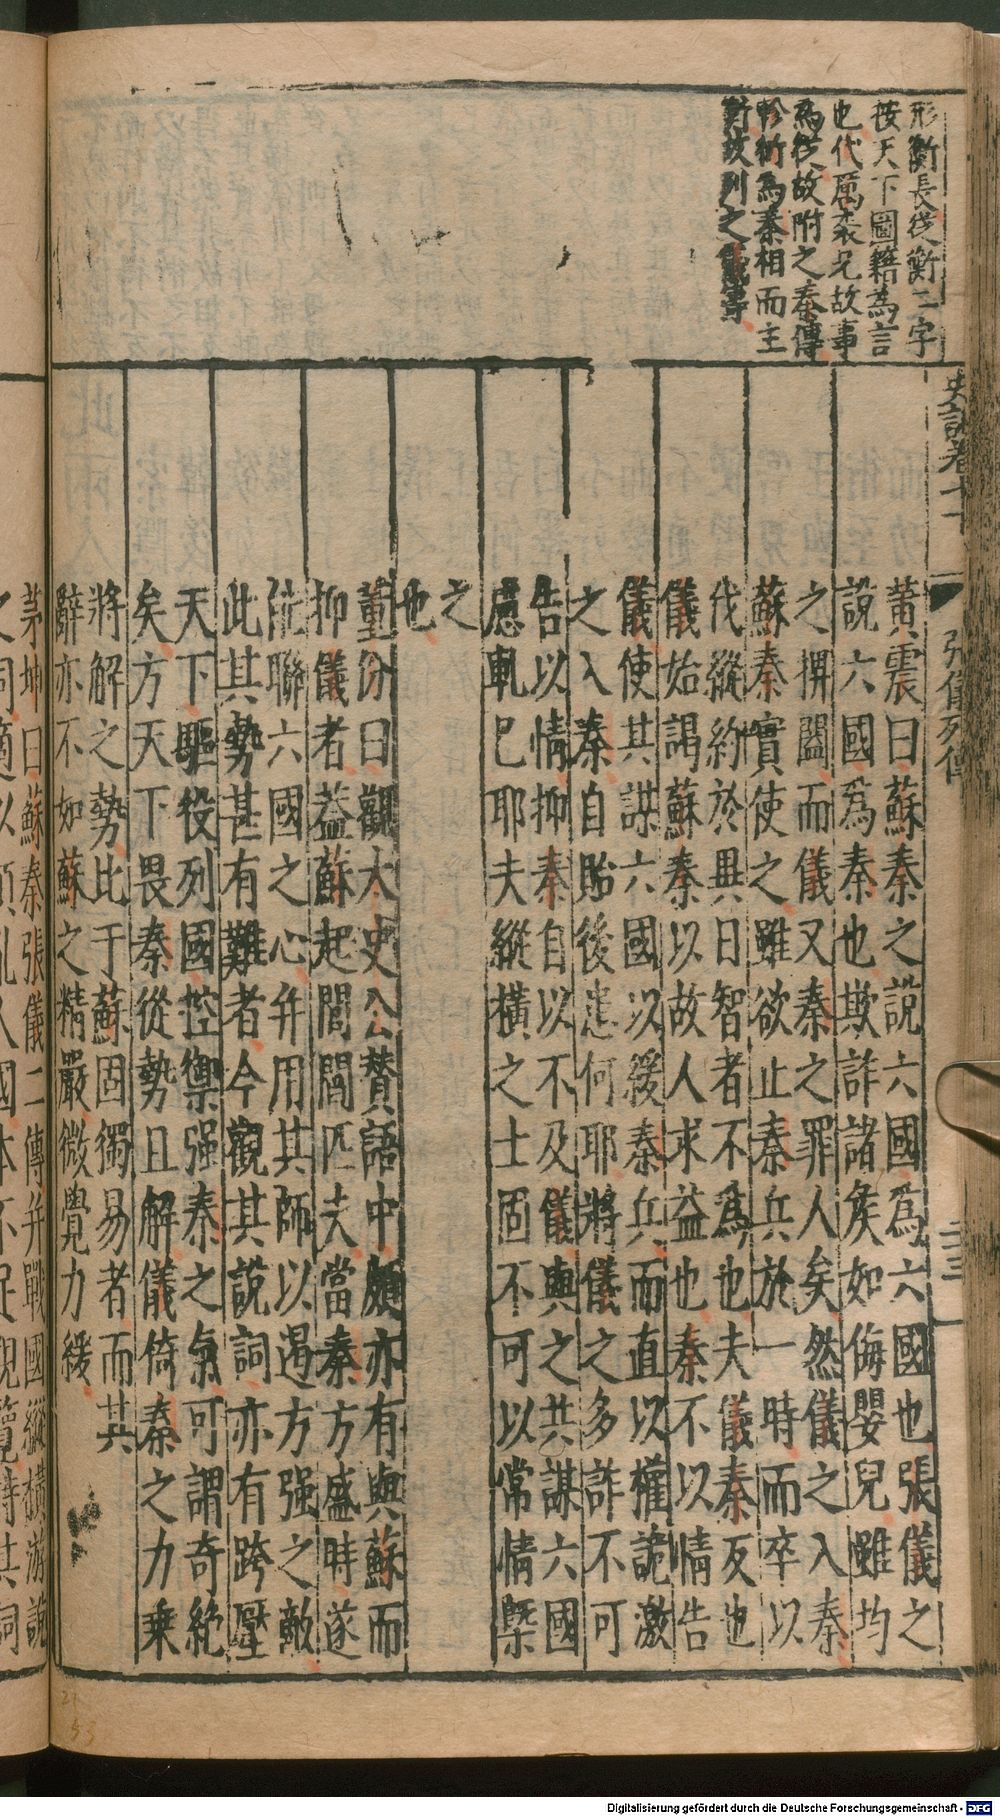 形衡長從衡二字
按天下圖籍為言
也代厲秦兄故事
為從故附之秦傳
軫衍為秦相而主
對故列之儀傳
史記卷七十
張儀列傳
二三
黃震曰蘇秦之說六國為六國也張儀之
說六國為秦也欺詐諸侯如侮嬰兒雖均
之捭闔而儀又秦之罪人矣然儀之入秦
蘇秦實使之雖欲止秦兵於一時而卒以
伐縱約於異日智者不為也夫儀秦反也
儀始謁蘇秦以故人求益也秦不以情告
儀使其謀六國以緩秦兵而直以權詭激
之入秦自貽後患何耶將儀之多詐不可
告以情抑秦自以不及儀與之共謀六國
慮軋已耶夫縱橫之士固不可以常情槩
之
也
董份曰觀太史公贊語中頗亦有與蘇而
抑儀者益蘇起閭閻匹夫當秦方盛時遂
能聯六國之心并用其師以遏方强之敵
此其勢甚有難者今觀其說詞亦有跨壓
天下驅役列國控禦强秦之氣可謂奇絶
矣方天下畏秦從勢且解儀倚秦之力乘
將解之勢比于蘇固獨易者而其
辭亦不如蘇之精嚴微覺力緩
茅坤曰蘇秦張儀二傳并戰國縱橫游說
Digitalisierung gefördert durch die Deutsche Forschungsgemeinschaft - DFG